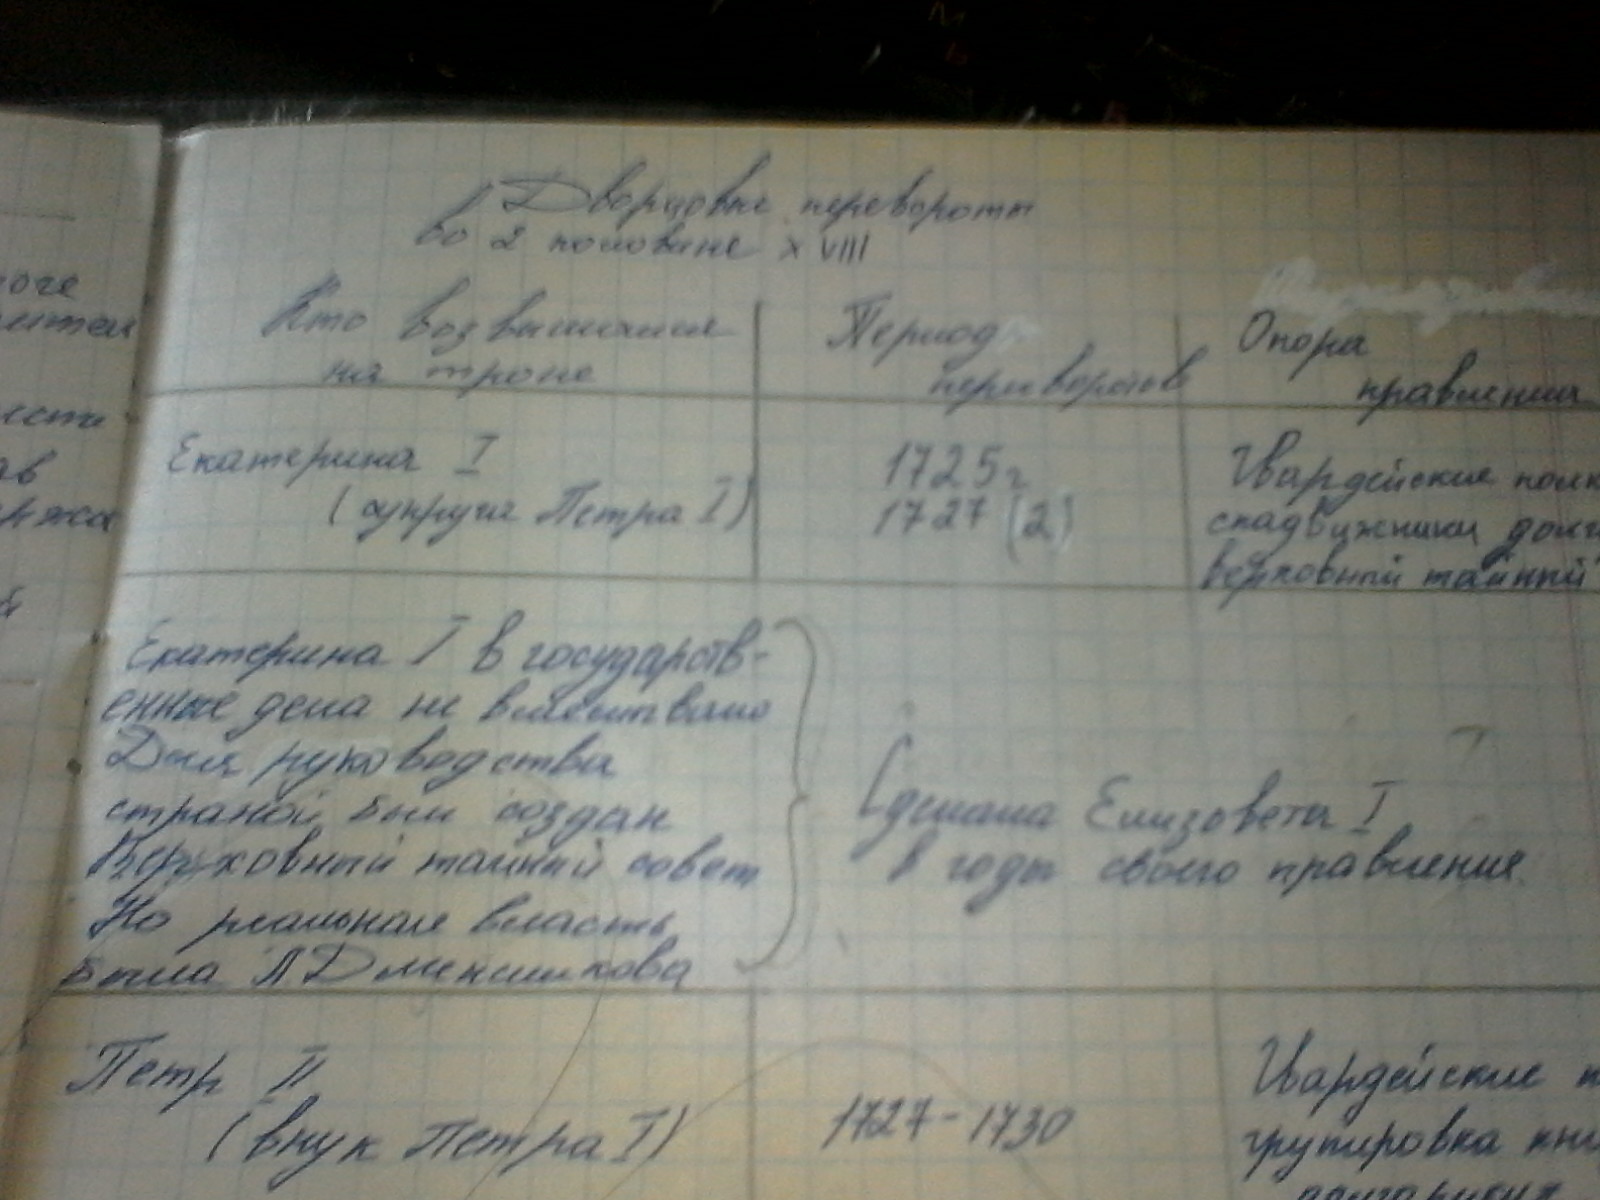 Дворцовые перевороты
во 2 половине XVIII
Кто возвышался
на троне
Период
переворотов
Опора
правления
Екатерина I
(супруга Петра I)
1725г
1727 (2)
Гвардейские полк
спадвижники
верховный тайный
Екатерина I в государств-
енные дела не вмешивала
Для руководства
страной был создан
Верховный тайный совет
Но реальная власть
была Меншикова
Сделала Елизовета I
в годы своего правления
Петр II
(внук Петра I)
1727-1730
Гвардейские п
групировка кня
оге
ести
ав
ержа